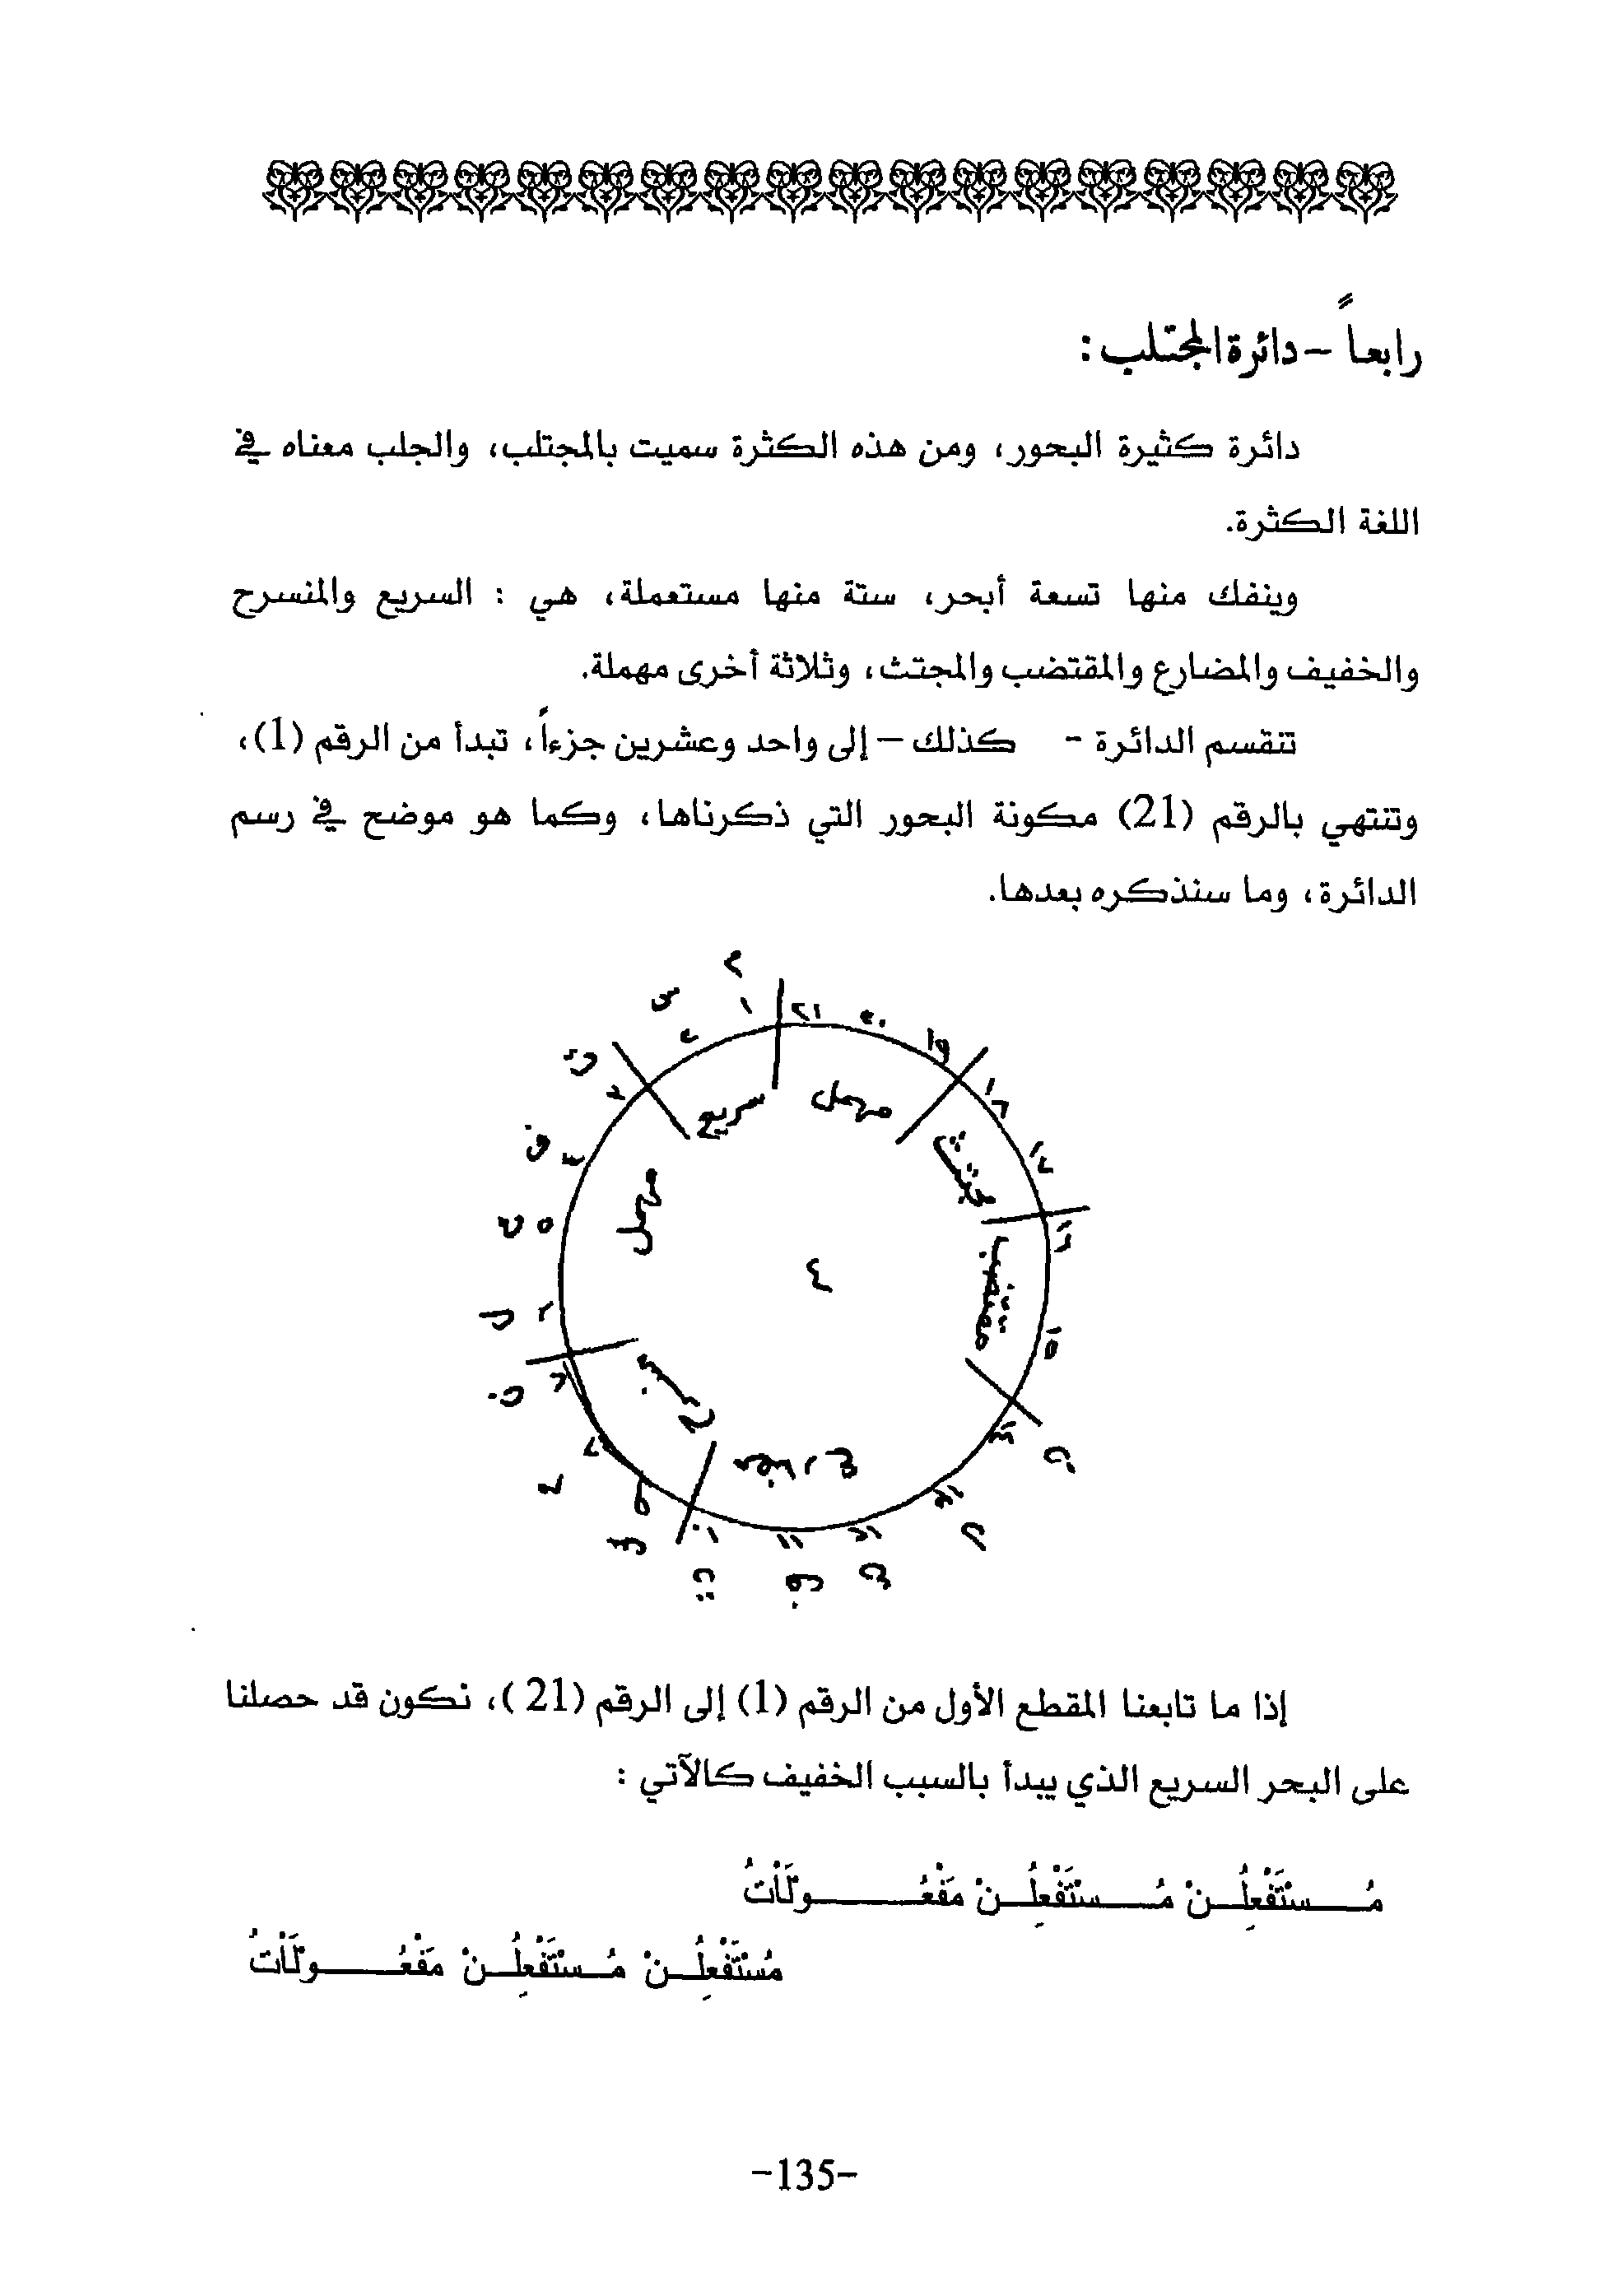 رابعاً – دائرة المجتلب :
دائرة كثيرة البحور، ومن هذه الكثرة سميت بالمجتلب، والجلب معناه في
اللغة الكثرة.
وينفك منها تسعة أبحر، ستة منها مستعملة، هي : السريع والمنسرح
والخفيف والمضارع والمقتضب والمجتث، وثلاثة أخرى مهملة.
تنقسم الدائرة - كذلك – إلى واحد وعشرين جزءاً، تبدأ من الرقم (1)،
وتنتهي بالرقم (21) مكونة البحور التي ذكرناها، وكما هو موضح في رسم
الدائرة، وما سنذكره بعدها.
م
س
ت
ف
ع
ل
ن
م
س
ت
ف
ع
ل
ن
١
٢
٣
٤
٥
٦
٧
٨
٩
١٠
١١
١٢
١٣
١٤
١٥
١٦
١٧
١٨
١٩
٢٠
٢١
سريع
مهمل
منسرح
مضارع
مقتضب
مجتث
مهمل
٤
إذا ما تابعنا المقطع الأول من الرقم (1) إلى الرقم (21 )، نكون قد حصلنا
على البحر السريع الذي يبدأ بالسبب الخفيف كالآتي :
مُـــسْتَفْعِلُــنْ مُـــسْتَفْعِلُــنْ مَفْعُـــــولَاْتُ
مُسْتَفْعِلُــنْ مُــسْتَفْعِلُــنْ مَفْعُـــــولَاْتُ
-135-